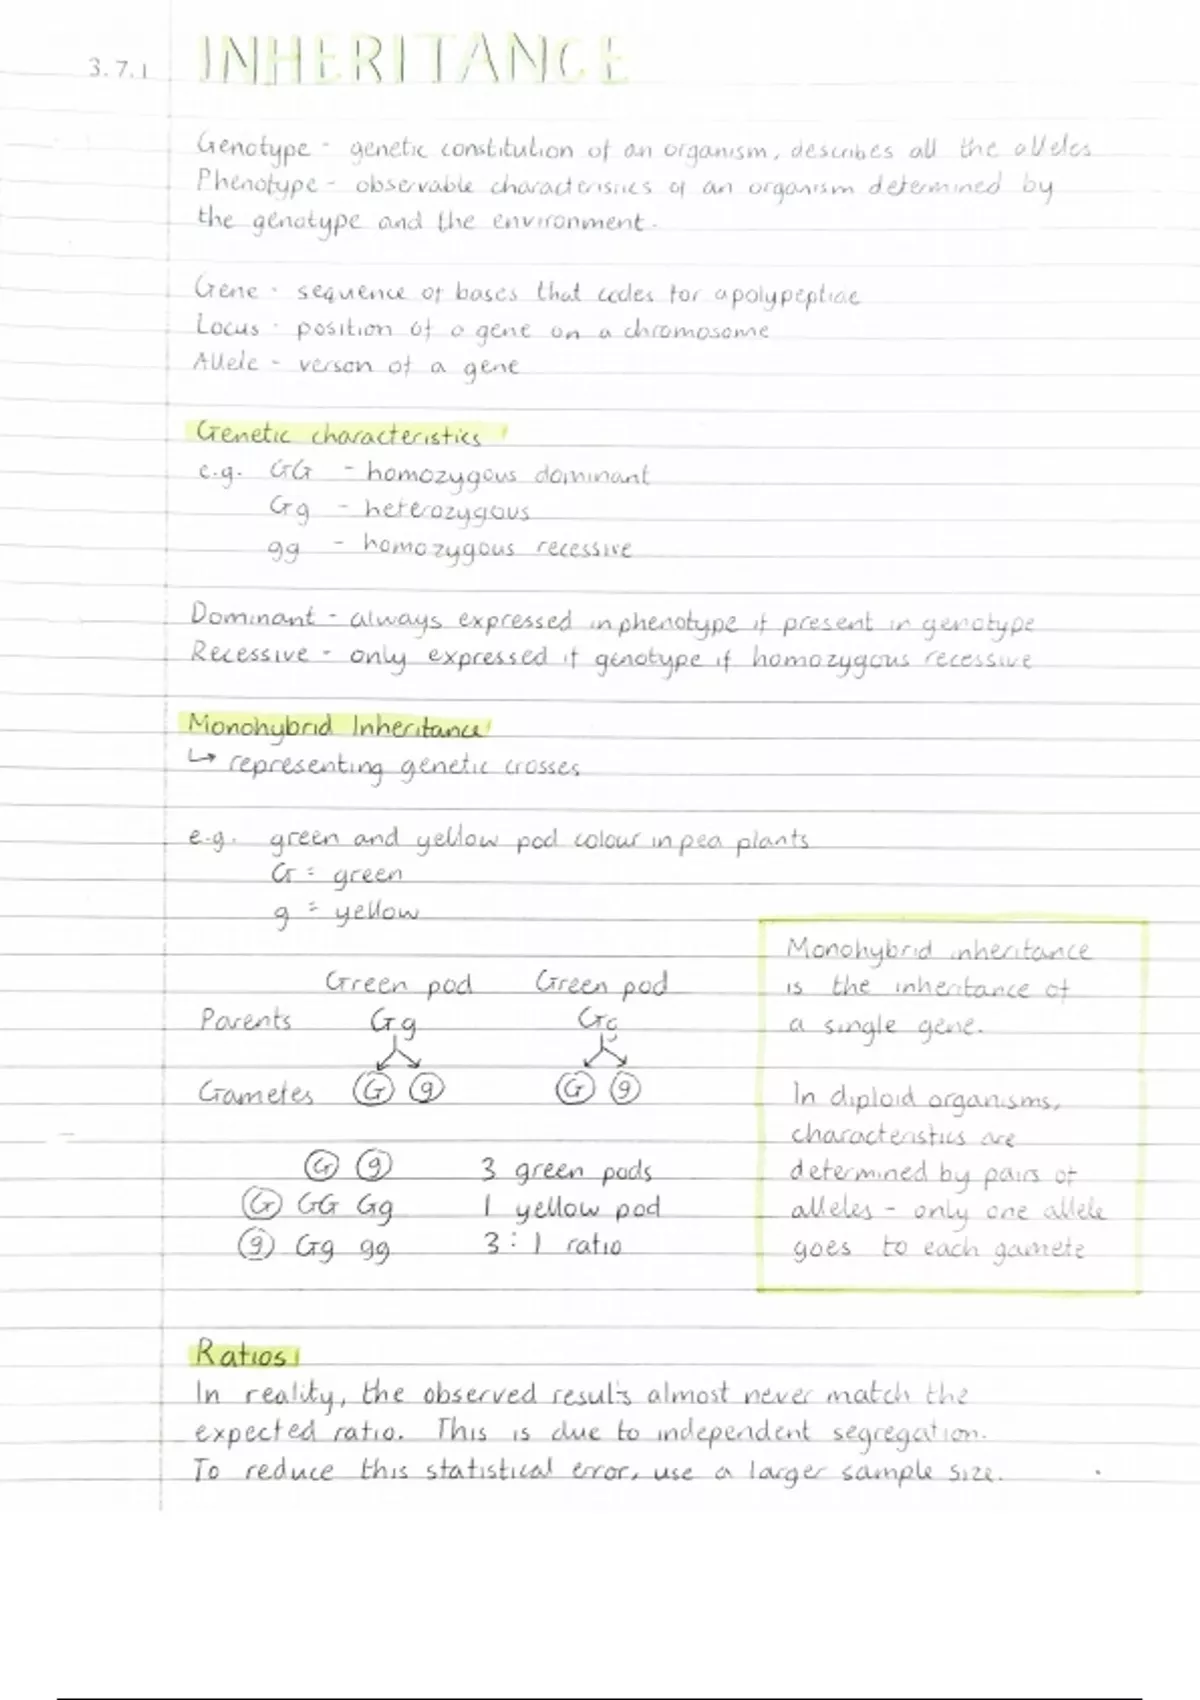 3.7.1 INHERITANCE
Genotype - genetic constitution of an organism, describes all the alleles
Phenotype - observable characteristics of an organism determined by
the genotype and the environment.
Gene - sequence of bases that codes for a polypeptide
Locus - position of a gene on a chromosome
Allele - verson of a gene
Genetic characteristics
e.g. GG - homozygous dominant
Gg - heterozygous
gg - homozygous recessive
Dominant - always expressed in phenotype if present in genotype
Recessive - only expressed if genotype if homozygous recessive
Monohybrid Inheritance
↳ representing genetic crosses
e.g. green and yellow pod colour in pea plants
G = green
g = yellow
Green pod Green pod
Parents Gg Gg
Gametes G g G g
G g 3 green pods
G GG Gg 1 yellow pod
g Gg gg 3:1 ratio
Monohybrid inheritance
is the inheritance of
a single gene.
In diploid organisms,
characteristics are
determined by pairs of
alleles - only one allele
goes to each gamete
Ratios
In reality, the observed results almost never match the
expected ratio. This is due to independent segregation.
To reduce this statistical error, use a larger sample size.